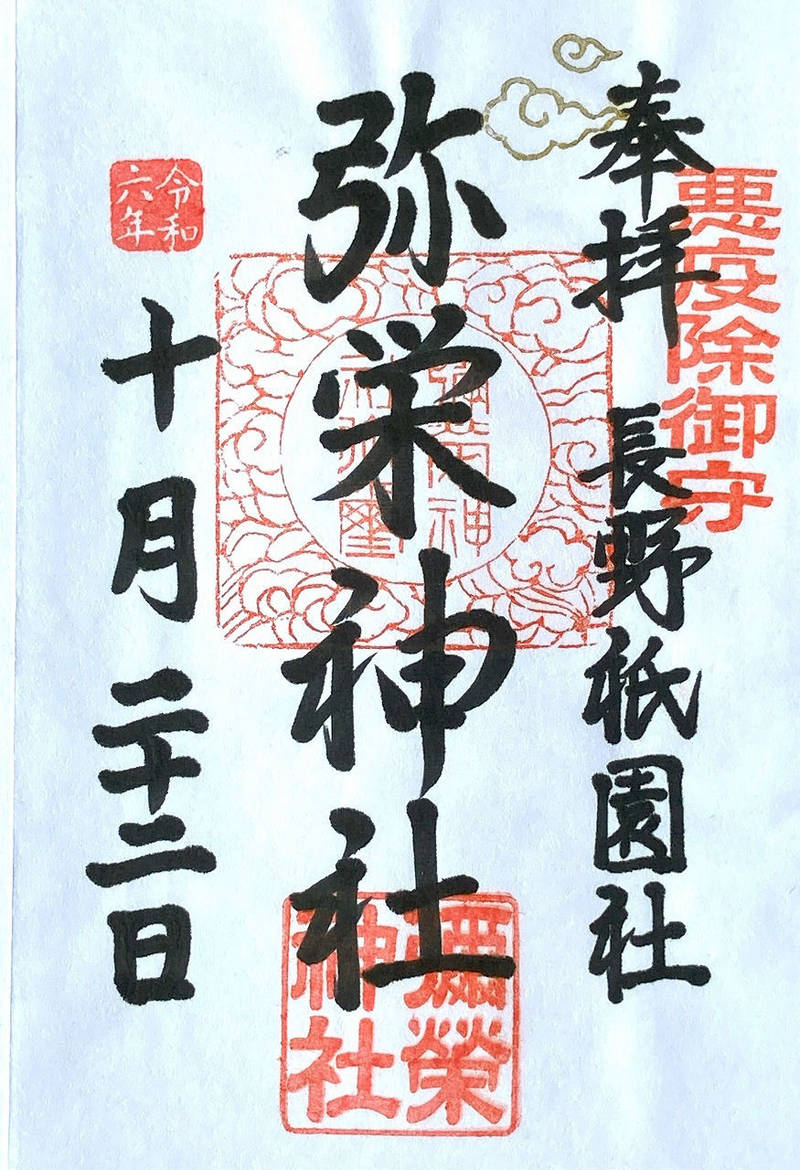 悪疫除御守
奉拝 長野祇園社
弥栄神社
彌榮
神社
令和
六年
十月二十二日